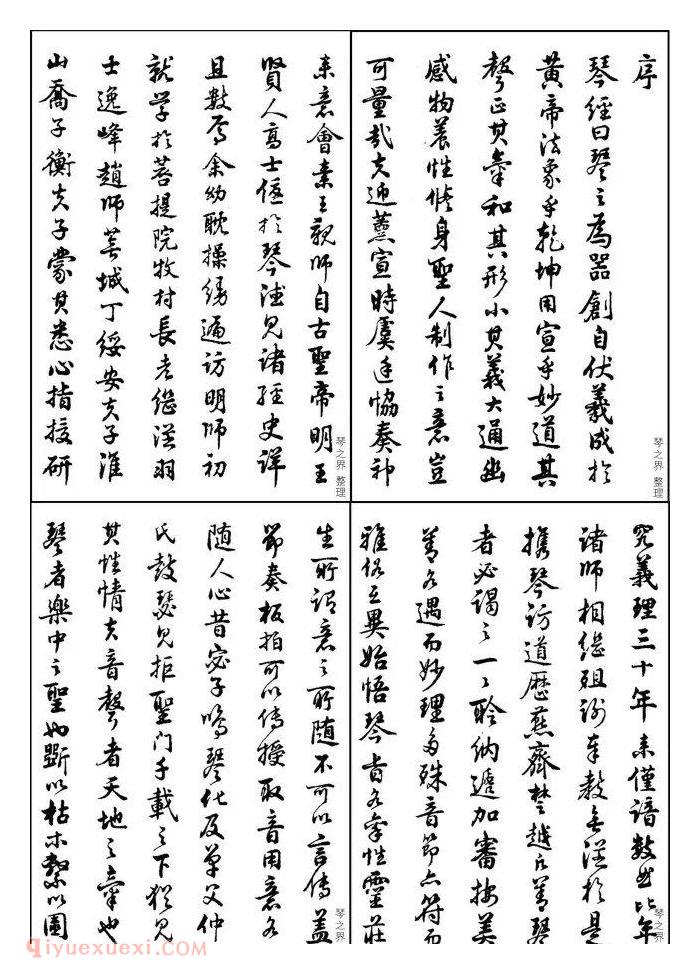 序
琴經曰琴之為器創自伏羲成於
黃帝法象乎乾坤用宣乎妙道其
聲正其氣和其形小其義大通幽
感物養性修身聖人制作之意豈
可量哉夫迎薰宣時虞廷協奏神
來意會素王親師自古聖帝明王
賢人高士僅於琴法見諸經史詳
且數焉余幼耽操縵遍訪明師初
就学於菩提院牧村長老继從羽
士逸峰趙師蕪城丁绥安夫子淮
山喬子衡夫子蒙其悉心指授研
究義理三十年来僅諳数曲比年
諸師相继殂謝奉教無從於是
携琴访道歷燕齊楚越凡善琴
者必谒之一一聆纳遞加審按美
善各遇而妙理多殊音節亦符而
雅俗互異始悟琴旨各率性靈莊
生所謂意之所随不可以言傳蓋
節奏板拍可以传授取音用意各
随人心昔宓子鳴琴化及單父仲
氏鼓瑟見拒聖门千載之下猶見
其性情夫音聲者天地之氣也
琴者樂中之聖也斵以枯木繫以圖
琴之界 整理
琴之界 整理
琴之界
琴之界
qiyuexuexi.com